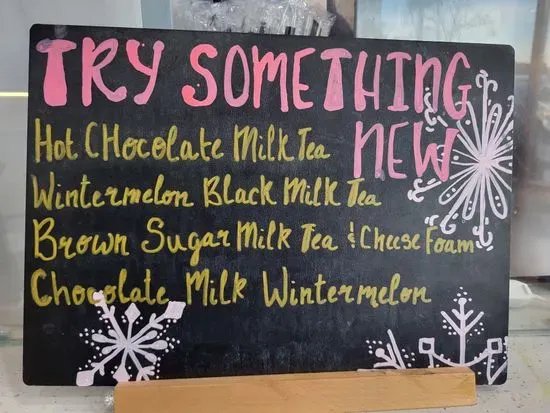 TRY SOMETHING
NEW
Hot CHocolate Milk Tea
Wintermelon Black Milk Tea
Brown Sugar Milk Tea & Cheese Foam
Chocolate Milk Wintermelon